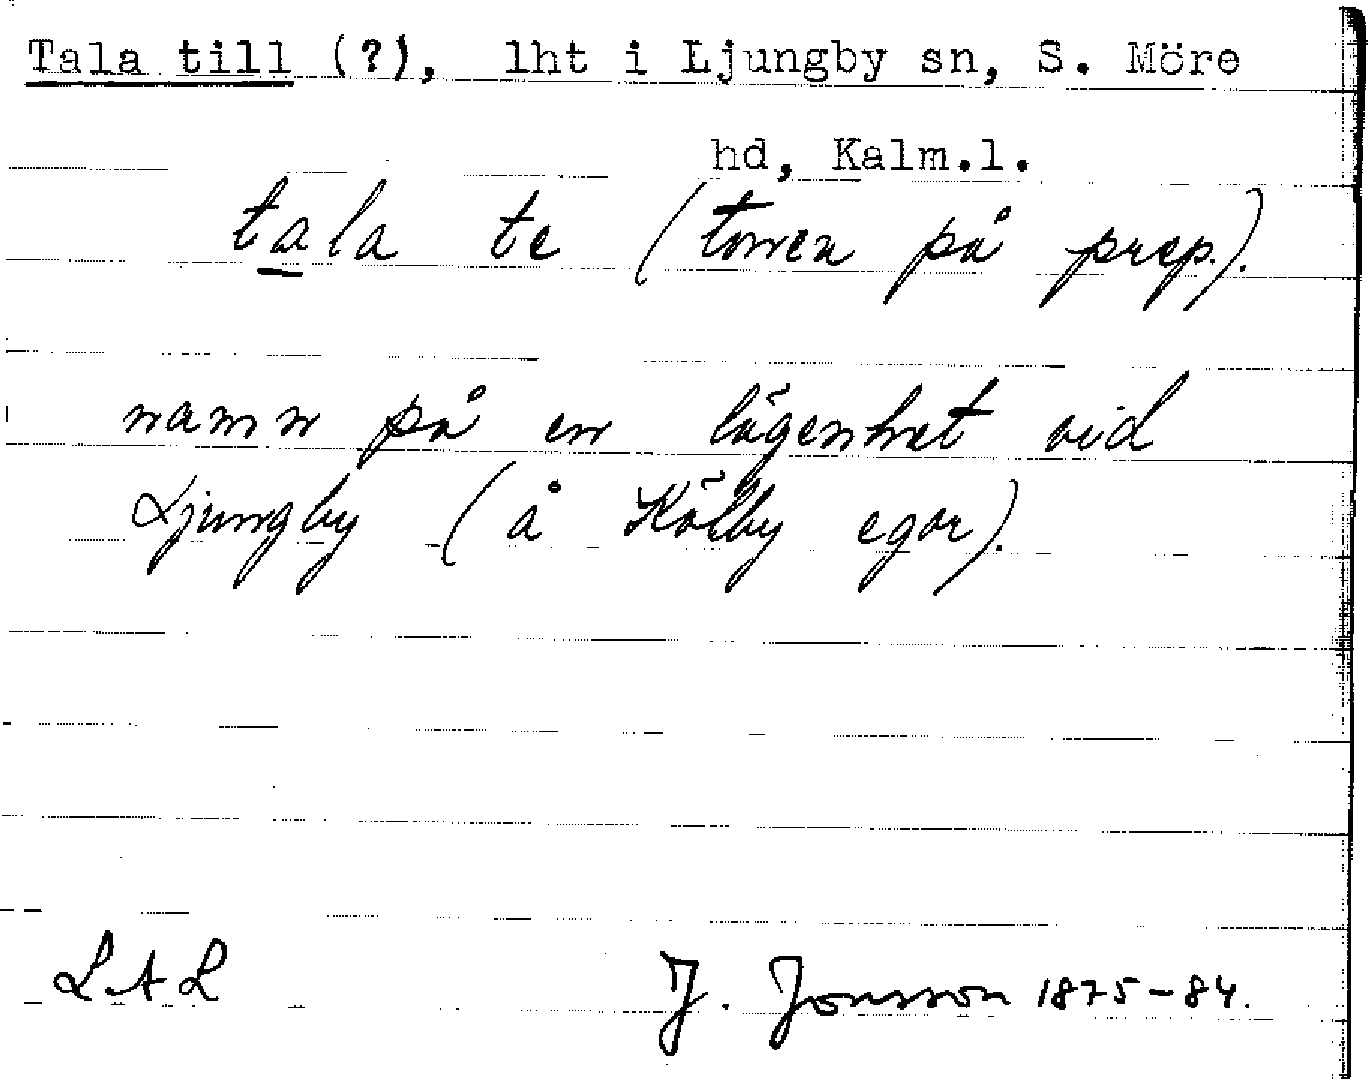 Tala till (?), lht i Ljungby sn, S. Möre
hd, Kalm.l.
tala te (tonen på prep.).
namn på en lägenhet vid
Ljungby (å Kölby egor).
LAL J. Jonsson 1875-84.